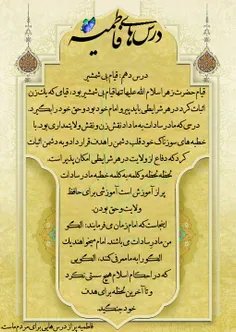 درس های فاطمیه
درس دهم: قیام بی شمشیر
قیام حضرت زهرا سلام الله علیها تنها قیام بی شمشیر بود، قیامی که یک زن
اثبات کرد در هر شرایطی باید پیرو امام خود بود و حق خود را بگیرد.
درحی که مادر سادات به ما داد نقش زن و نقش ولایتمداری بود. با
خطبه های سوزناک خود قلب دشمن را هدف قرار داد و به دشمن اثبات
کرد که دفاع از ولایت در هر شرایطی امکان پذیر است.
لحظه لحظه و کلمه به کلمه خطبه مادر سادات
پر از آموزش است آموزشی برای حافظ
ولایت و حق بودن.
اینجاست که امام زمان می فرمایند: الگو
من مادر سادات می باشند. امام میخواهند یک
الگو را به ما معرفی کنند، الگویی
که در احکام اسلام هیچ سستی نکرد
و تا آخرین لحظه برای هدف
خود جنگید.
فاطمیه پر از درس هایی برای مردم ماست